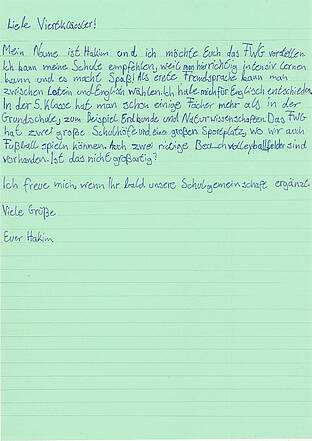 Liebe Viertklässler!
Mein Name ist Hakim und ich möchte Euch das FWG vorstellen.
Ich kann meine Schule empfehlen, weil man hier richtig intensiv lernen
kann und es macht Spaß! Als erste Fremdsprache kann man
zwischen Latein und Englisch wählen. Ich habe mich für Englisch entschieden.
In der 5. Klasse hat man schon einige Fächer mehr als in der
Grundschule, zum Beispiel Erdkunde und Naturwissenschaften. Das FWG
hat zwei große Schulhöfe und einen großen Sportplatz, wo wir auch
Fußball spielen können. Auch zwei riesige Beachvolleyballfelder sind
vorhanden. Ist das nicht großartig?
Ich freue mich, wenn ihr bald unsere Schulgemeinschaft ergänzt.
Viele Grüße
Euer Hakim